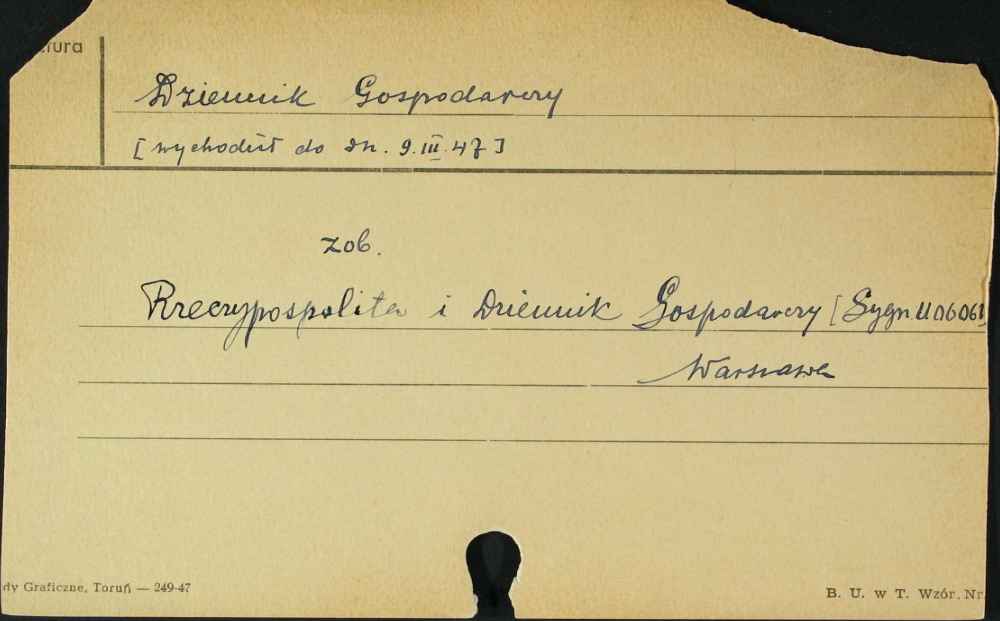 tura
Dziennik Gospodarczy
[wychodził do dn. 9.III.47]
zob.
Rzeczypospolita i Dziennik Gospodarczy [Sygn.
Warszawa
dy Graficzne, Toruń — 249-47
B. U. w T. Wzór. Nr.